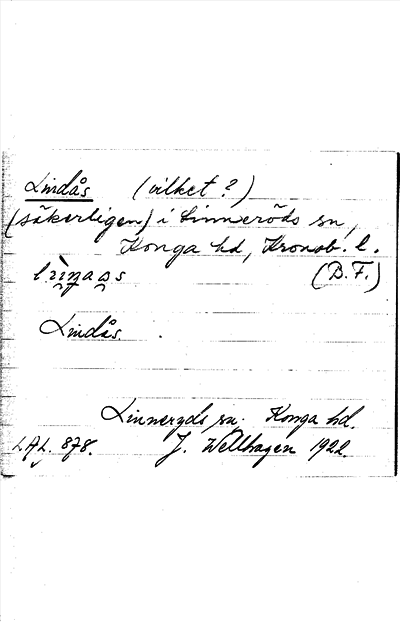 Lindås (vilket?)
(säkerligen) i Linneröds sn,
Konga hd, Kronob. l.
(B.F.)
Lindås.
Linneryds sn. Konga hd.
LAL. 878. J. Wellhagen 1922.